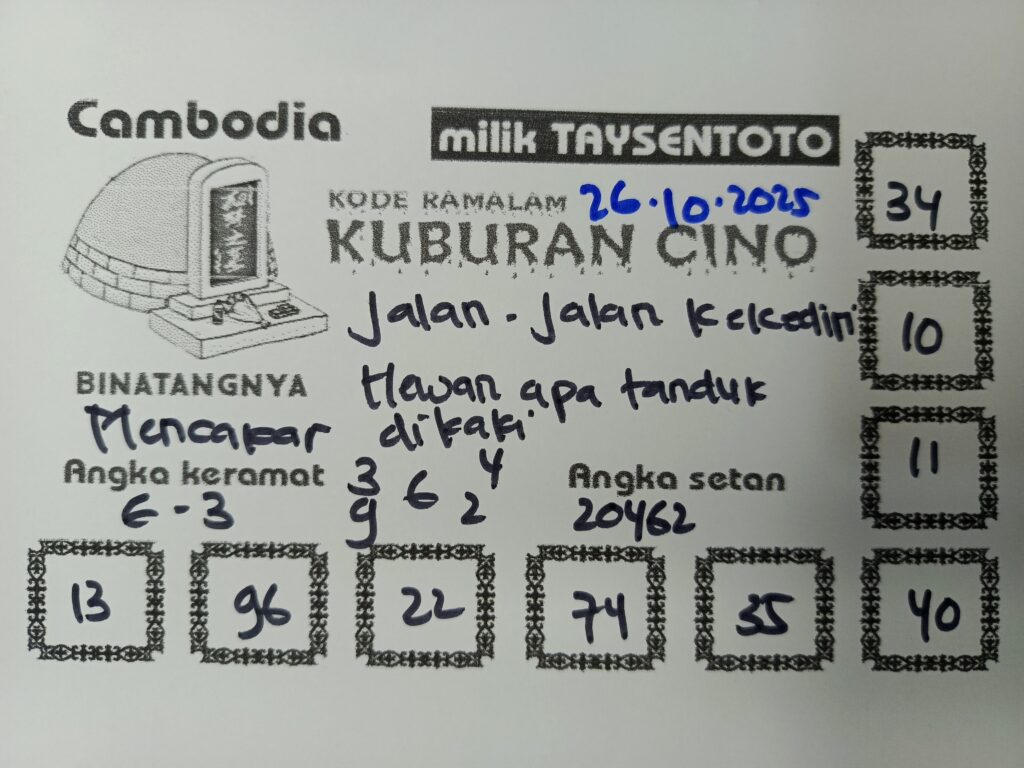 Cambodia
milik TAYSENTOTO
KODE RAMALAM 26.10.2025
KUBURAN CINO
Jalan - Jalan Kekediri
BINATANGNYA
Mencakar
Hewan apa tanduk
dikaki
Angka keramat
6 - 3
3 6 4
9 2
Angka setan
20462
34
10
11
13 96 22 74 35 40